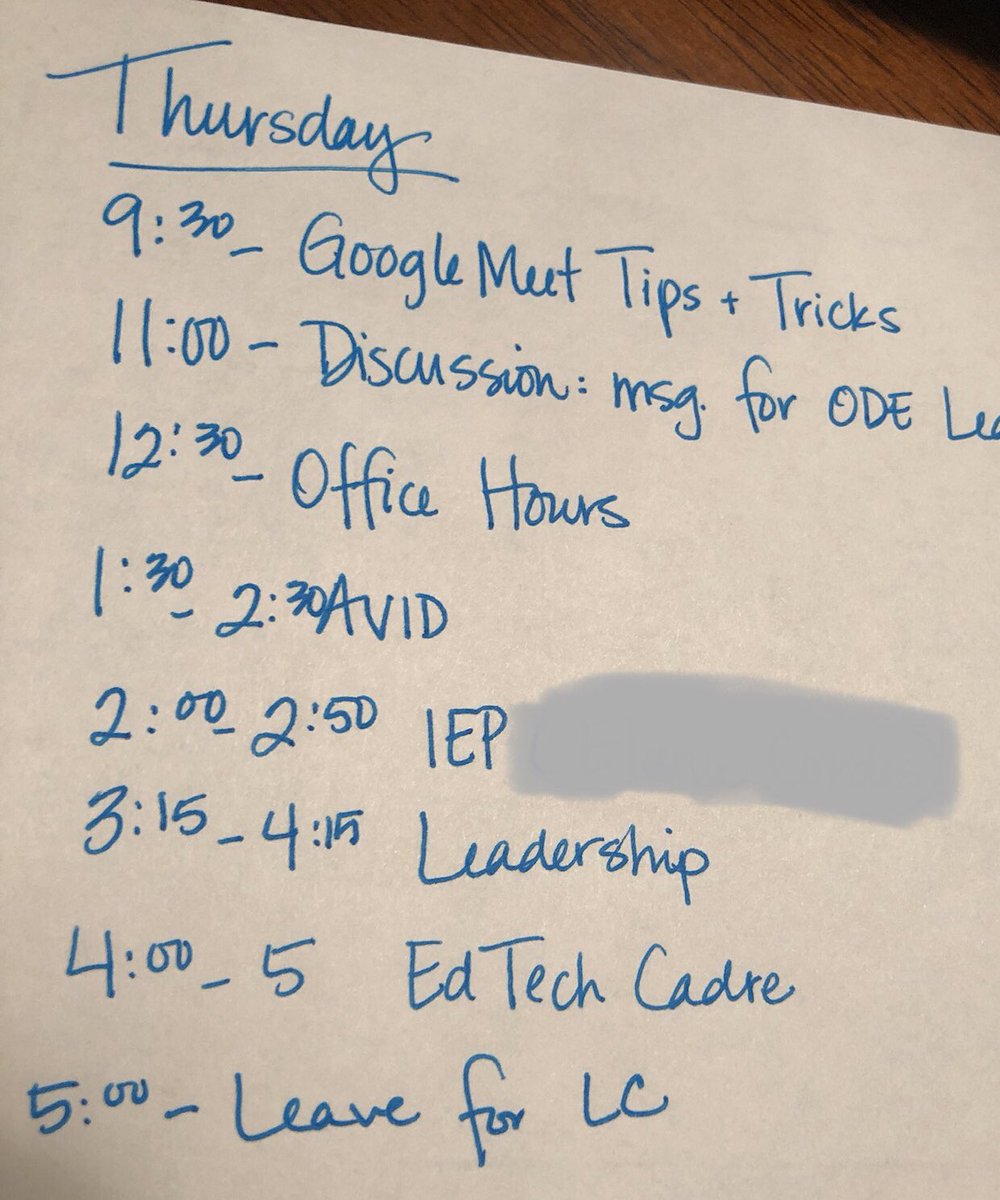 Thursday
9:30 - Google Meet Tips + Tricks
11:00 - Discussion: msg. for ODE
12:30 - Office Hours
1:30 - 2:30 AVID
2:00 - 2:50 IEP
3:15 - 4:15 Leadership
4:00 - 5 EdTech Cadre
5:00 - Leave for LC